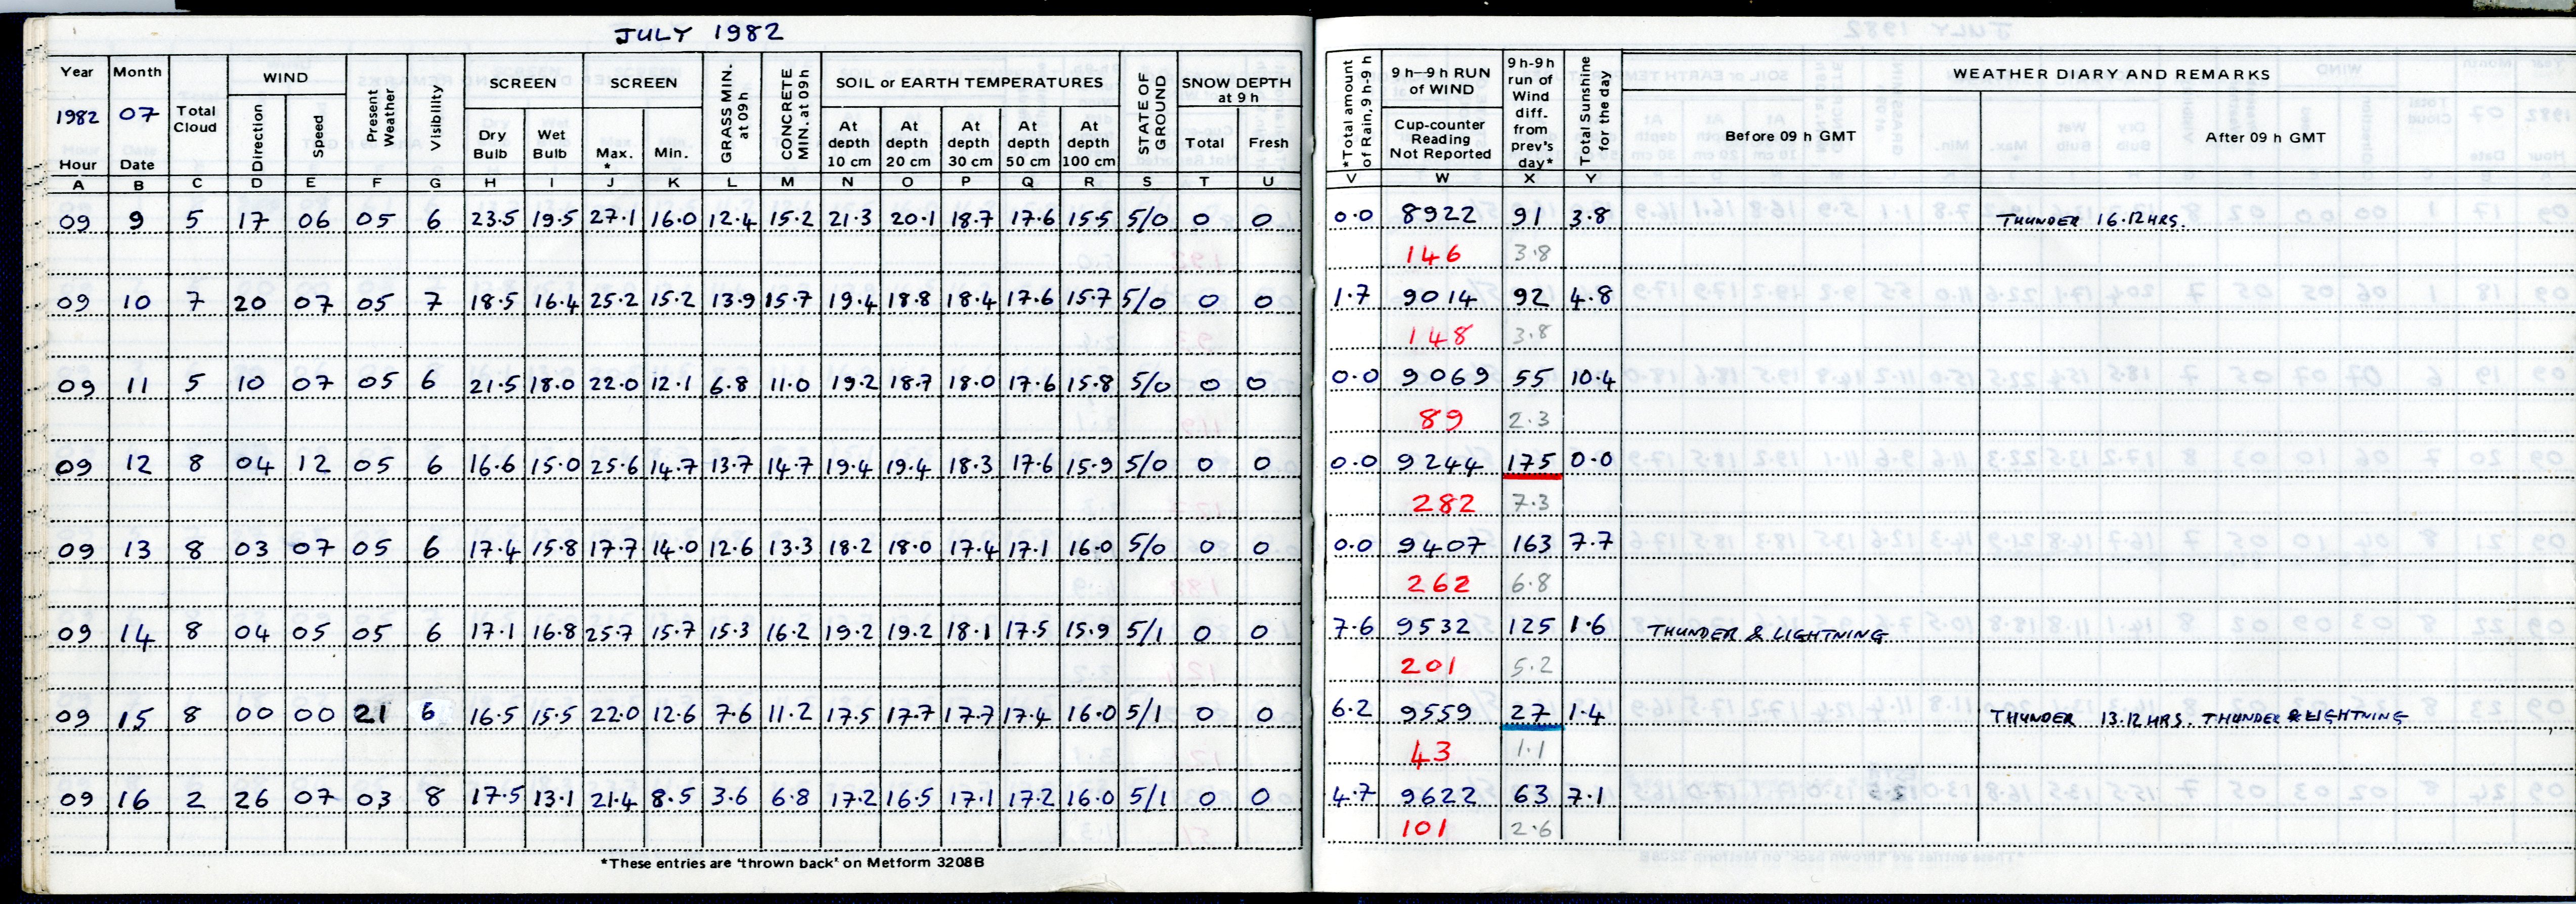 JULY 1982
Year Month Total Cloud WIND Present Weather Visibility SCREEN SCREEN GRASS MIN. at 09h CONCRETE MIN. at 09h SOIL or EARTH TEMPERATURES STATE OF GROUND SNOW DEPTH at 9 h *Total amount of Rain, 9h-9h 9 h—9 h RUN of WIND 9h-9h run of Wind diff. from prev's day* Total Sunshine for the day WEATHER DIARY AND REMARKS
1982 07 Direction Speed Dry Bulb Wet Bulb Max. * Min. At depth 10 cm At depth 20 cm At depth 30 cm At depth 50 cm At depth 100 cm Total Fresh Cup-counter Reading Not Reported Before 09 h GMT After 09 h GMT
Hour Date
A B C D E F G H I J K L M N O P Q R S T U V W X Y
09 9 5 17 06 05 6 23.5 19.5 27.1 16.0 12.4 15.2 21.3 20.1 18.7 17.6 15.5 5/0 0 0 0.0 8922 91 3.8 THUNDER 16.12HRS.
146 3.8
09 10 7 20 07 05 7 18.5 16.4 25.2 15.2 13.9 15.7 19.4 18.8 18.4 17.6 15.7 5/0 0 0 1.7 9014 92 4.8
148 3.8
09 11 5 10 07 05 6 21.5 18.0 22.0 12.1 6.8 11.0 19.2 18.7 18.0 17.6 15.8 5/0 0 0 0.0 9069 55 10.4
89 2.3
09 12 8 04 12 05 6 16.6 15.0 25.6 14.7 13.7 14.7 19.4 19.4 18.3 17.6 15.9 5/0 0 0 0.0 9244 175 0.0
282 7.3
09 13 8 03 07 05 6 17.4 15.8 17.7 14.0 12.6 13.3 18.2 18.0 17.4 17.1 16.0 5/0 0 0 0.0 9407 163 7.7
262 6.8
09 14 8 04 05 05 6 17.1 16.8 25.7 15.7 15.3 16.2 19.2 19.2 18.1 17.5 15.9 5/1 0 0 7.6 9532 125 1.6 THUNDER & LIGHTNING
201 5.2
09 15 8 00 00 21 6 16.5 15.5 22.0 12.6 7.6 11.2 17.5 17.7 17.7 17.4 16.0 5/1 0 0 6.2 9559 27 1.4 THUNDER 13.12HRS. THUNDER & LIGHTNING
43 1.1
09 16 2 26 07 03 8 17.5 13.1 21.4 8.5 3.6 6.8 17.2 16.5 17.1 17.2 16.0 5/1 0 0 4.7 9622 63 7.1
101 2.6
*These entries are 'thrown back' on Metform 3208B